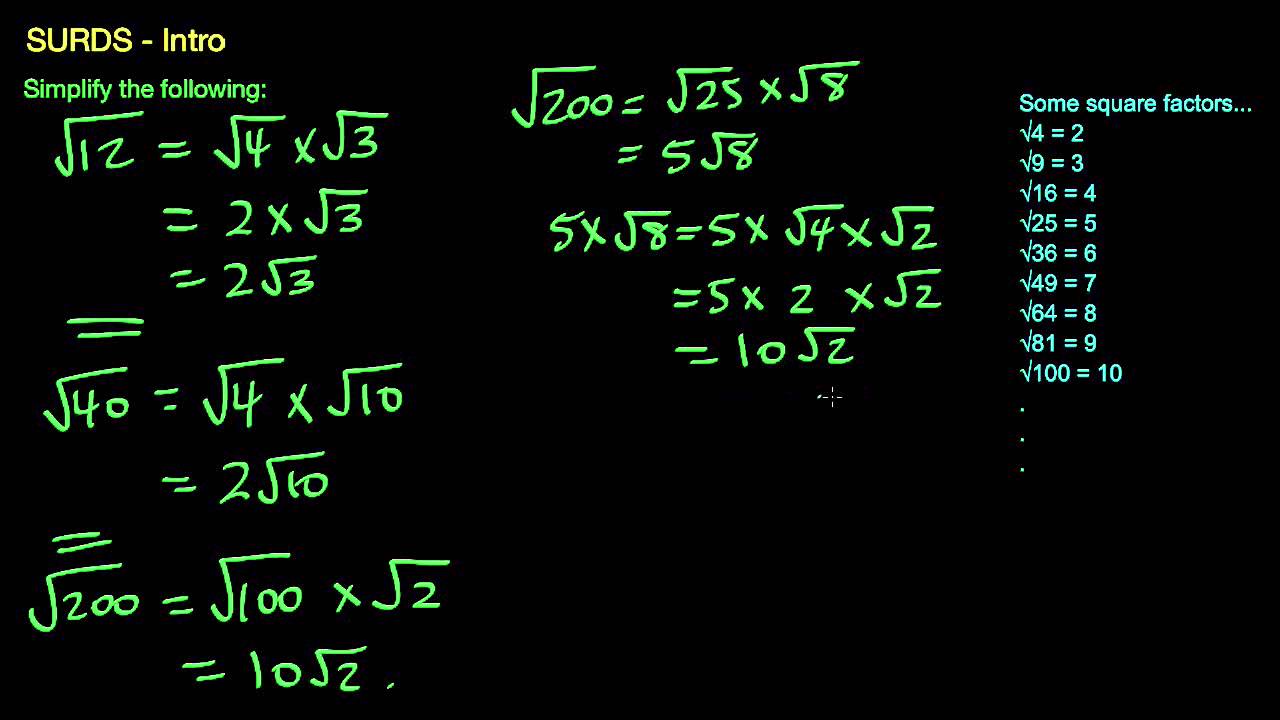 SURDS - Intro
Simplify the following:
√12 = √4 × √3
= 2 × √3
= 2√3
√40 = √4 × √10
= 2√10
√200 = √100 × √2
= 10√2.
√200 = √25 × √8
= 5√8
5×√8 = 5 × √4 × √2
= 5 × 2 × √2
= 10√2
Some square factors...
√4 = 2
√9 = 3
√16 = 4
√25 = 5
√36 = 6
√49 = 7
√64 = 8
√81 = 9
√100 = 10
.
.
.